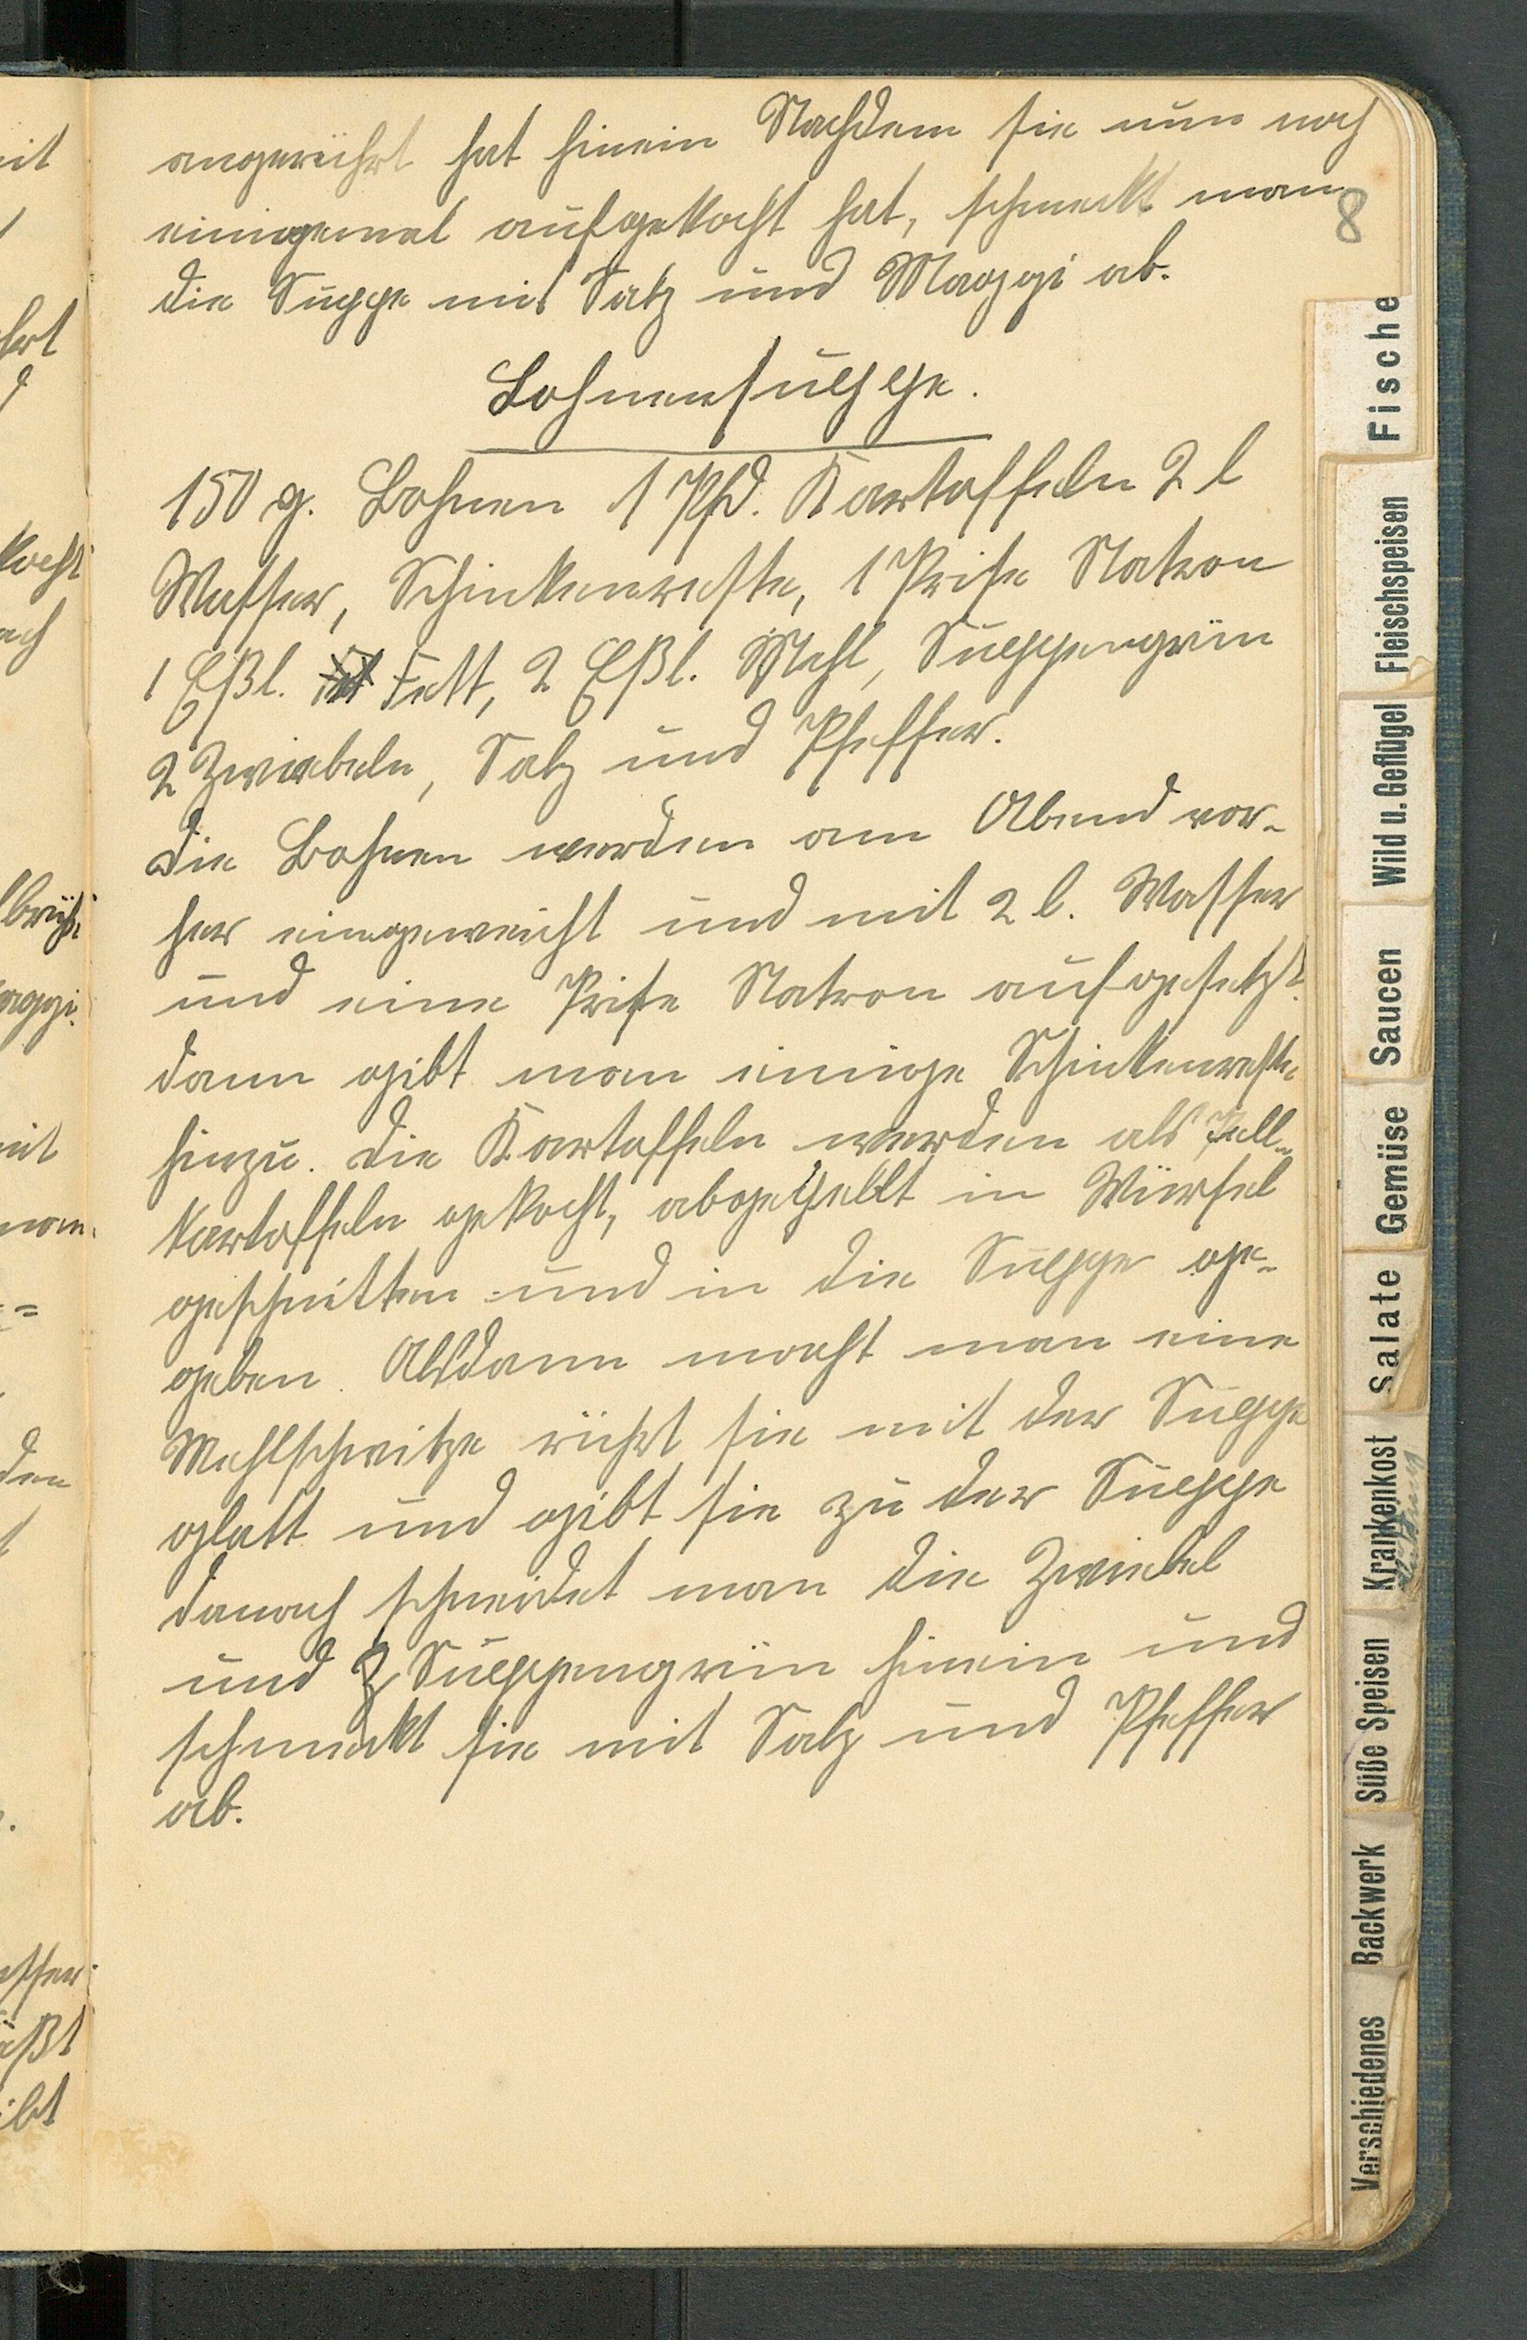 angerührt hat hinein Nachdem sie nun noch
einigemal aufgekocht hat, schmeckt man
die Suppe mit Salz und Maggi ab.
8
Bohnensuppe.
150 g. Bohnen 1 Pfd. Kartoffeln 2 l
Wasser, Schinkenreste, 1 Prise Natron
1 Eßl. Fett, 2 Eßl. Mehl, Suppengrün
2 Zwiebeln, Salz und Pfeffer.
Die Bohnen werden am Abend vor-
her eingeweicht und mit 2 l. Wasser
und eine Prise Natron aufgesetzt.
dann gibt man einige Schinkenreste
hinzu. Die Kartoffeln werden als Pell-
kartoffeln gekocht, abgepellt in Würfel
geschnitten und in die Suppe ge-
geben. Alsdann macht man eine
Mehlschwitze rührt sie mit der Suppe
glatt und gibt sie zu der Suppe
danach schneidet man die Zwiebel
und Suppengrün hinein und
schmeckt sie mit Salz und Pfeffer
ab.
Fische
Fleischspeisen
Wild u. Geflügel
Saucen
Gemüse
Salate
Krankenkost
Süße Speisen
Backwerk
Verschiedenes